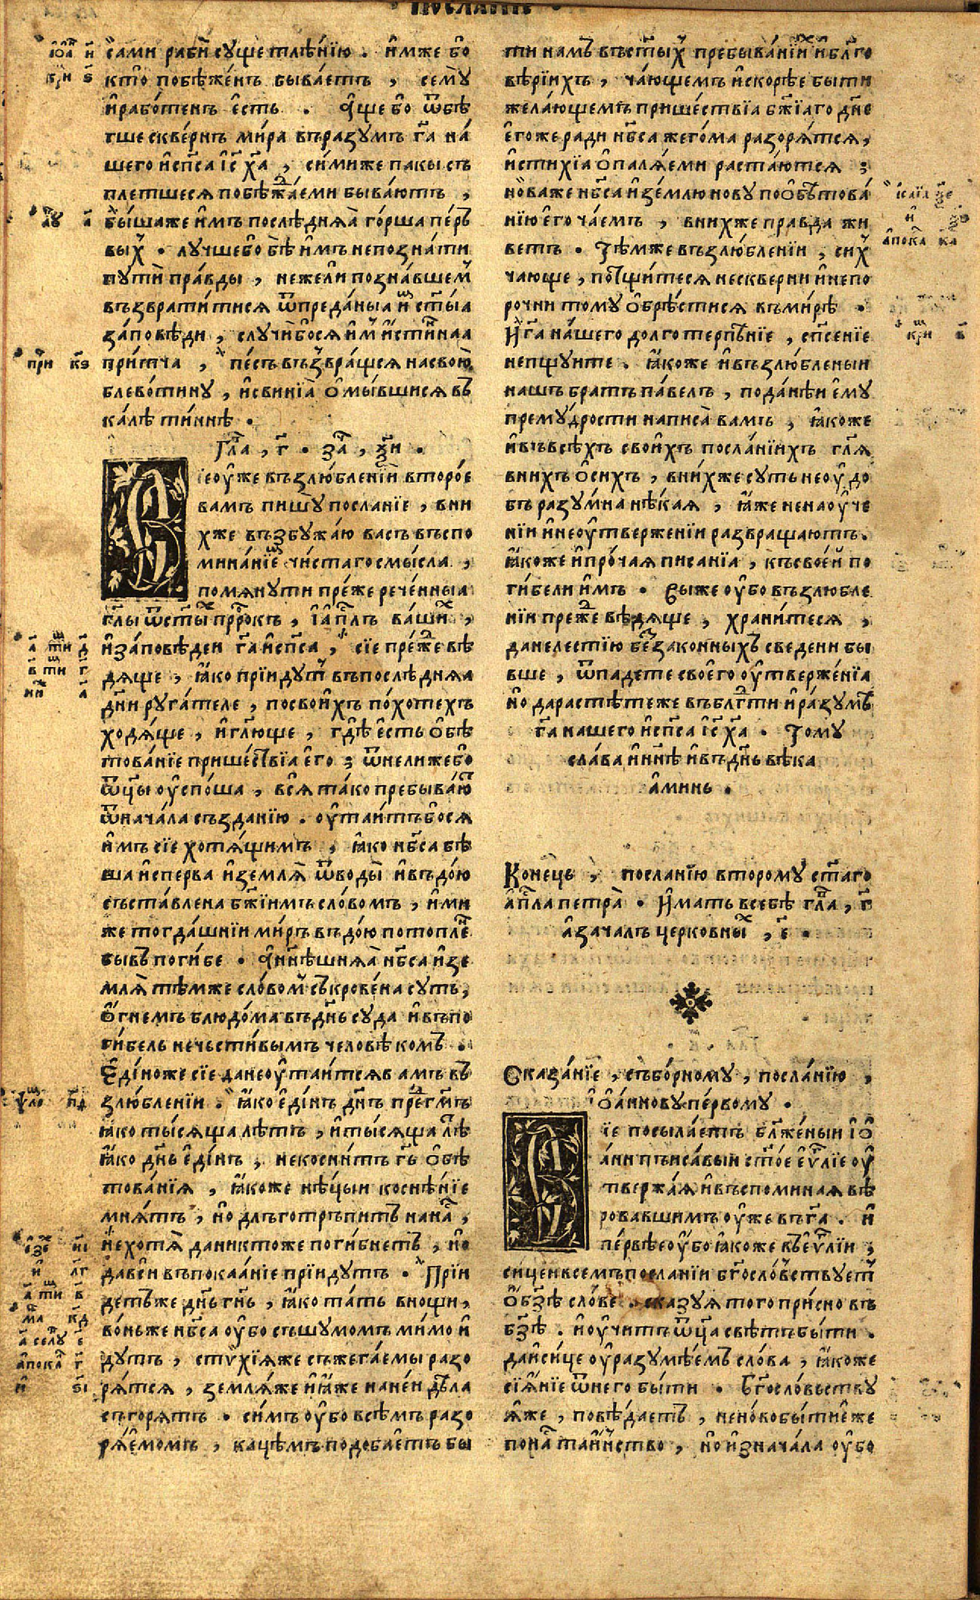 послание
сами раби суще тлѣнїю . имже бо
кто побѣженъ бываетъ , сему
и работенъ есть . аще бо ѿбѣ
гше сквернъ мира въразумъ г҃а на
шего и сп҃са іс҃ х҃а , симиже пакы съ
плетшеся побѣжаеми бываютъ ,
бышаже имъ послѣдняа горша перъ
вых . лучшебо бѣ имъ непознати
пути правды , нежели познавшем
възвратитися ѿпреданыа и ст҃ыа
заповѣди , случибося им истиннаа
притча , песъ възвращся на свою
блевотину , и свинїа омывшися въ
калѣ тиннѣ .
Гла , г҃ . за , ѯ҃и .
Сїеуже възлюбленїи второе
вамъ пишу посланїе , вни
хже възбужаю васъ въспо
минанїе чистаго смысла ,
помянути преже реченныа
гл҃ы ѿст҃ы прр҃окъ , і ап҃лъ ваши ,
и заповѣдеи г҃а и сп҃са , сїе преже вѣ
дяще , яко прїидут въпослѣдняа
дн҃и ругателе , посвоихъ похотехъ
ходяще , и гл҃юще , гдѣ есть обѣ
тованїе пришествїа его ; ѿнелиже бо
ѿц҃ы оуспоша , вся тако пребываю
ѿначала създанїю . оутаитъбося
имъ сїе хотящимъ , яко нб҃са бѣ
ша исперва и земля ѿводы и въдою
съставлена бж҃їимъ словомъ , ими
же тогдашнїи миръ въдою потопле
бывъ погибе . а нн҃ѣшняа нб҃са и зе
мля тѣмже словом съкровена суть,
огнемъ блюдома въ дн҃ь суда и въ по
гибель нечестивымъ человѣкомъ .
Едїноже сїе данеоутаитсяв амъ въ
злюбленїи . яко едїнъ дн҃ь прег҃мъ
яко тысяща лѣтъ , и тысяща лѣ
яко дн҃ь едїнъ , некоснитъ г҃ь обѣ
тованїя , якоже нѣцыи коснѣнїе
мнятъ , но длъготръпитъ нана ,
не хотя даниктоже погибнетъ , но
давси въпокаанїе прїидутъ . Прїи
детъже дн҃ь гн҃ь , яко тать внощи,
воньже нб҃са оубо съшумомъ мимо и
дутъ , стѵхїяже съжегаемы разо
рятся , земляже и яже наней дѣла
сгорятъ . симъ оубо всѣмъ разо
ряемомъ , кацѣмъ подобаетъ бы
ти намъ въст҃ых пребыванїи и бл҃го
вѣрїихъ , чающемъ и скорѣе быти
желающемъ пришествїа бж҃їаго дн҃е
егоже ради нб҃са жегома разорятся,
и стихїа опаляеми растаются ;
новаже нб҃са и землю нову пообѣтова
нїю его чаемъ , внихже правда жи
ветъ . Тѣмже възлюбленїи , сих
чающе , потщитеся нескверни и непо
рочни тому обрѣстися въ мирѣ .
И г҃а нашего долготерпѣнїе , сп҃сенїе
непщуите . якоже и възлюбленыи
нашъ братъ павелъ , поданѣи ему
премудрости написа вамъ , якоже
и въ всѣхъ своихъ посланїихъ гл҃я
внихъ о сихъ , внихже суть неоудо
бь разумна нѣкая , яже ненаоуче
нїи и неоутверженїи развращаютъ.
якоже и прочая писанїа , къ своей по
гибели имъ . выже оубо възлюбле
нїи преже вѣдяще , хранитеся ,
данелестїю беззаконныхъ сведени бы
вше , ѿпадете своего оутверженїа
но дарастѣтеже въ бл҃гти и разумѣ
г҃а нашего и сп҃са іс҃ х҃а . Тому
слава и нн҃ѣ и въ дн҃ь вѣка
аминь .
Конець , посланїю второму ст҃аго
ап҃ла петра . Имать всебѣ гла , г҃
а зачалъ церковны , е҃ .
Сказанїе , съборному , посланїю ,
іоаннову первому .
Сїе посылаетъ бл҃женыи іо
анн пъисавыи ст҃ое еѵ҃лїе оу
твержая и въспоминая вѣ
ровавшимъ оуже въ г҃а . и
первѣе оубо якоже въ еѵ҃лїи ,
сицеи всемъ посланїи бг҃ословствует
о бз҃ѣ слове . сказуя того присно въ
бз҃ѣ . и оучитъ ѿц҃а свѣтъ быти .
даисице оуразумѣемъ слова , якоже
сїянїе ѿнего быти . Бг҃ословьству
яже , повѣдаетъ , не ново быти еже
пона таинство , но изначала оубо